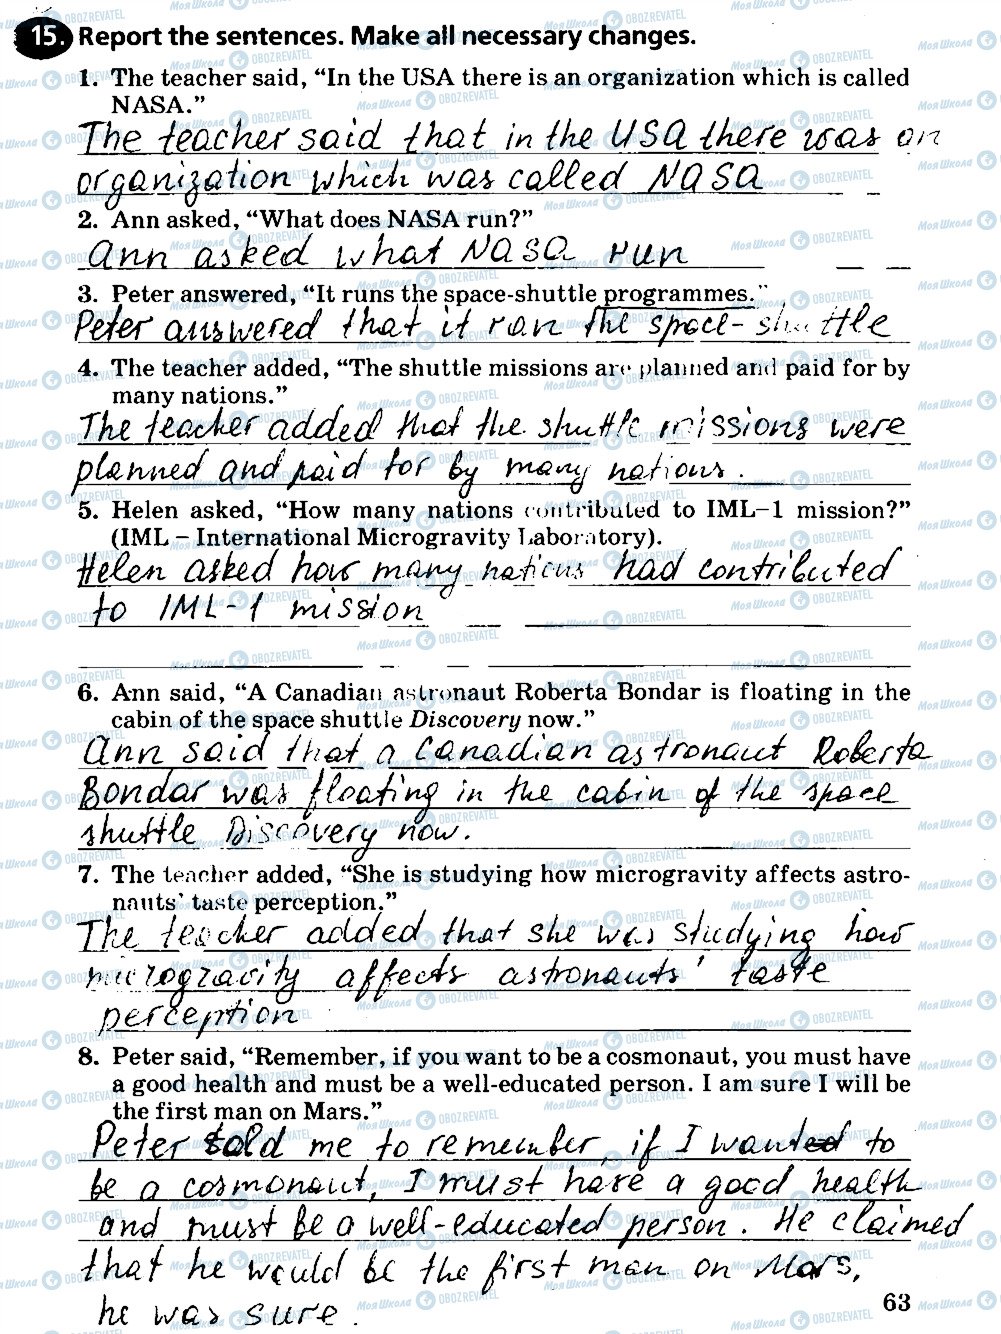 15. Report the sentences. Make all necessary changes.
1. The teacher said, “In the USA there is an organization which is called
NASA.”
The teacher said that in the USA there was an
organization which was called NASA
2. Ann asked, “What does NASA run?”
Ann asked what NASA run
3. Peter answered, “It runs the space-shuttle programmes.”
Peter answered that it ran the space-shuttle
4. The teacher added, “The shuttle missions are planned and paid for by
many nations.”
The teacher added that the shuttle missions were
planned and paid for by many nations.
5. Helen asked, “How many nations contributed to IML–1 mission?”
(IML – International Microgravity Laboratory).
Helen asked how many nations had contributed
to IML-1 mission
6. Ann said, “A Canadian astronaut Roberta Bondar is floating in the
cabin of the space shuttle Discovery now.”
Ann said that a Canadian astronaut Roberta
Bondar was floating in the cabin of the space
shuttle Discovery now.
7. The teacher added, “She is studying how microgravity affects astro-
nauts’ taste perception.”
The teacher added that she was studying how
microgracity affects astronauts' taste
perception
8. Peter said, “Remember, if you want to be a cosmonaut, you must have
a good health and must be a well-educated person. I am sure I will be
the first man on Mars.”
Peter told me to remember, if I wanted to
be a cosmonaut, I must have a good health
and must be a well-educated person. He claimed
that he would be the first man on Mars,
he was sure.
63